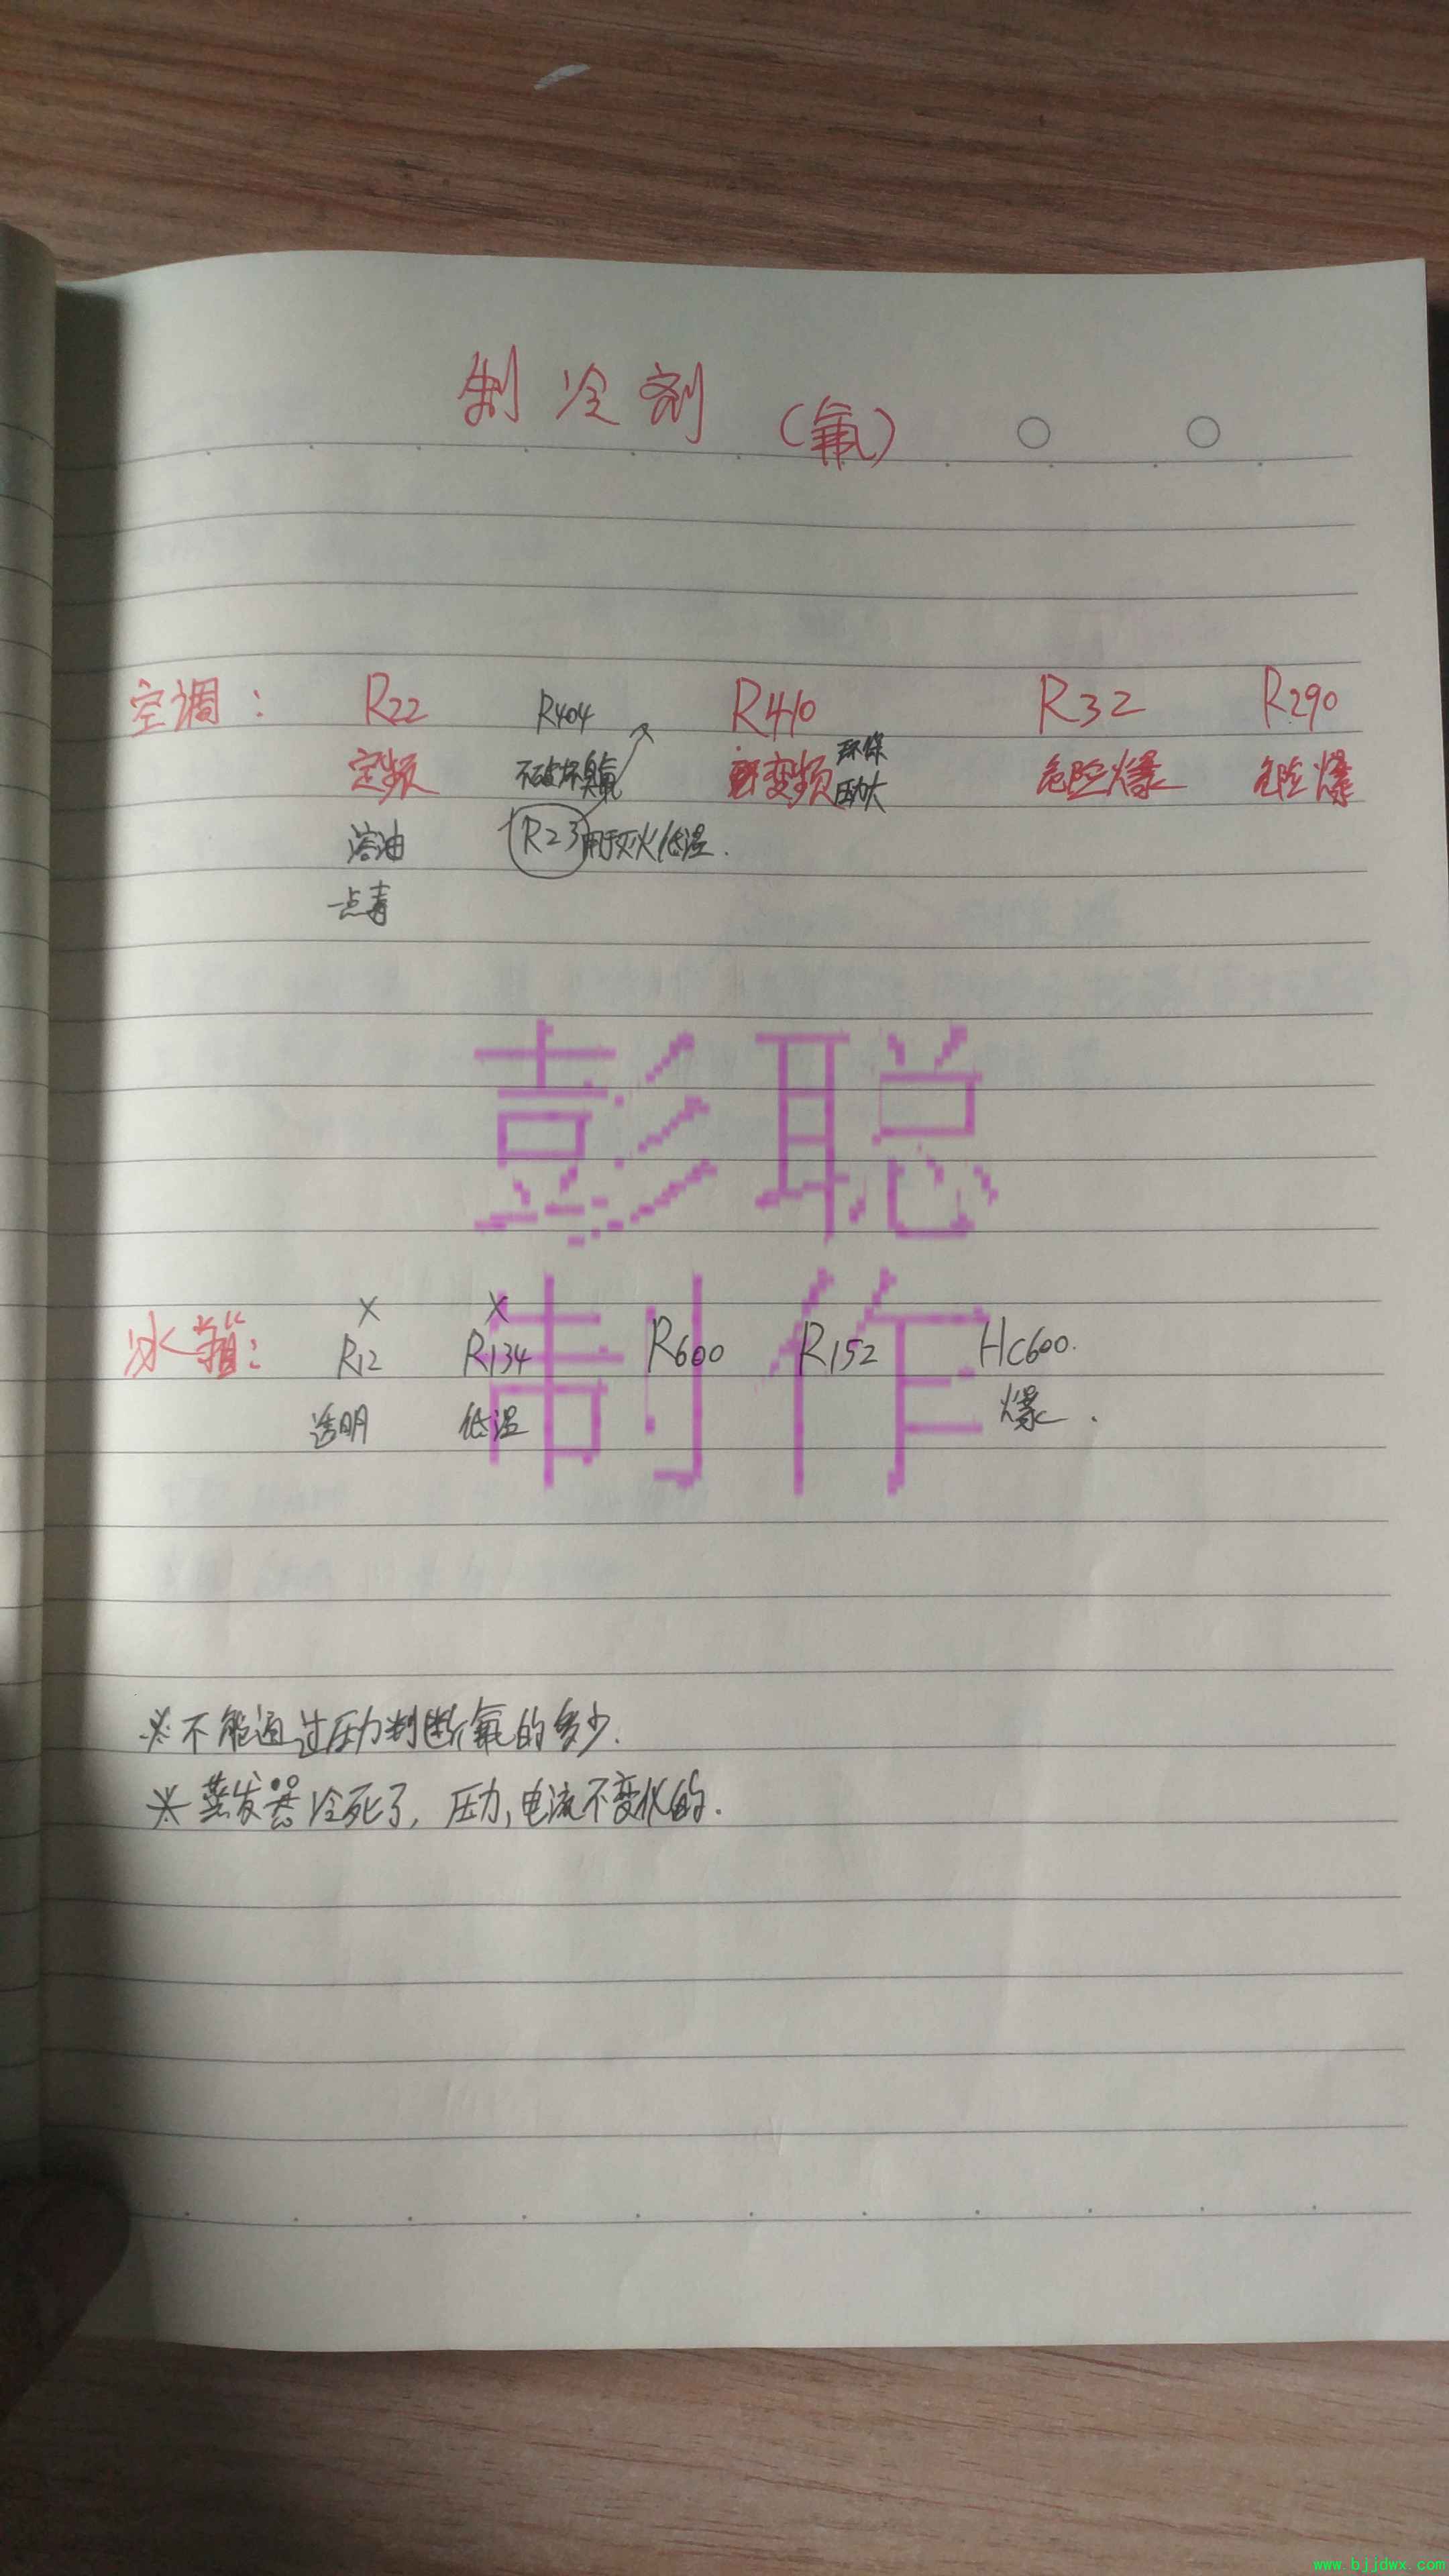 制冷剂 (氟)
空调: R22 R404 R410 R32 R290
定频 不破坏臭氧 变频 环保 压力大 危险爆 危险爆
溶油 R23 用于灭火低温.
一点毒
彭聪
制作
× ×
冰箱: R12 R134 R600 R152 HC600.
透明 低温 爆.
※不能通过压力判断氟的多少.
※蒸发器冷死了, 压力,电流不变化的.
www.bjjdwx.com